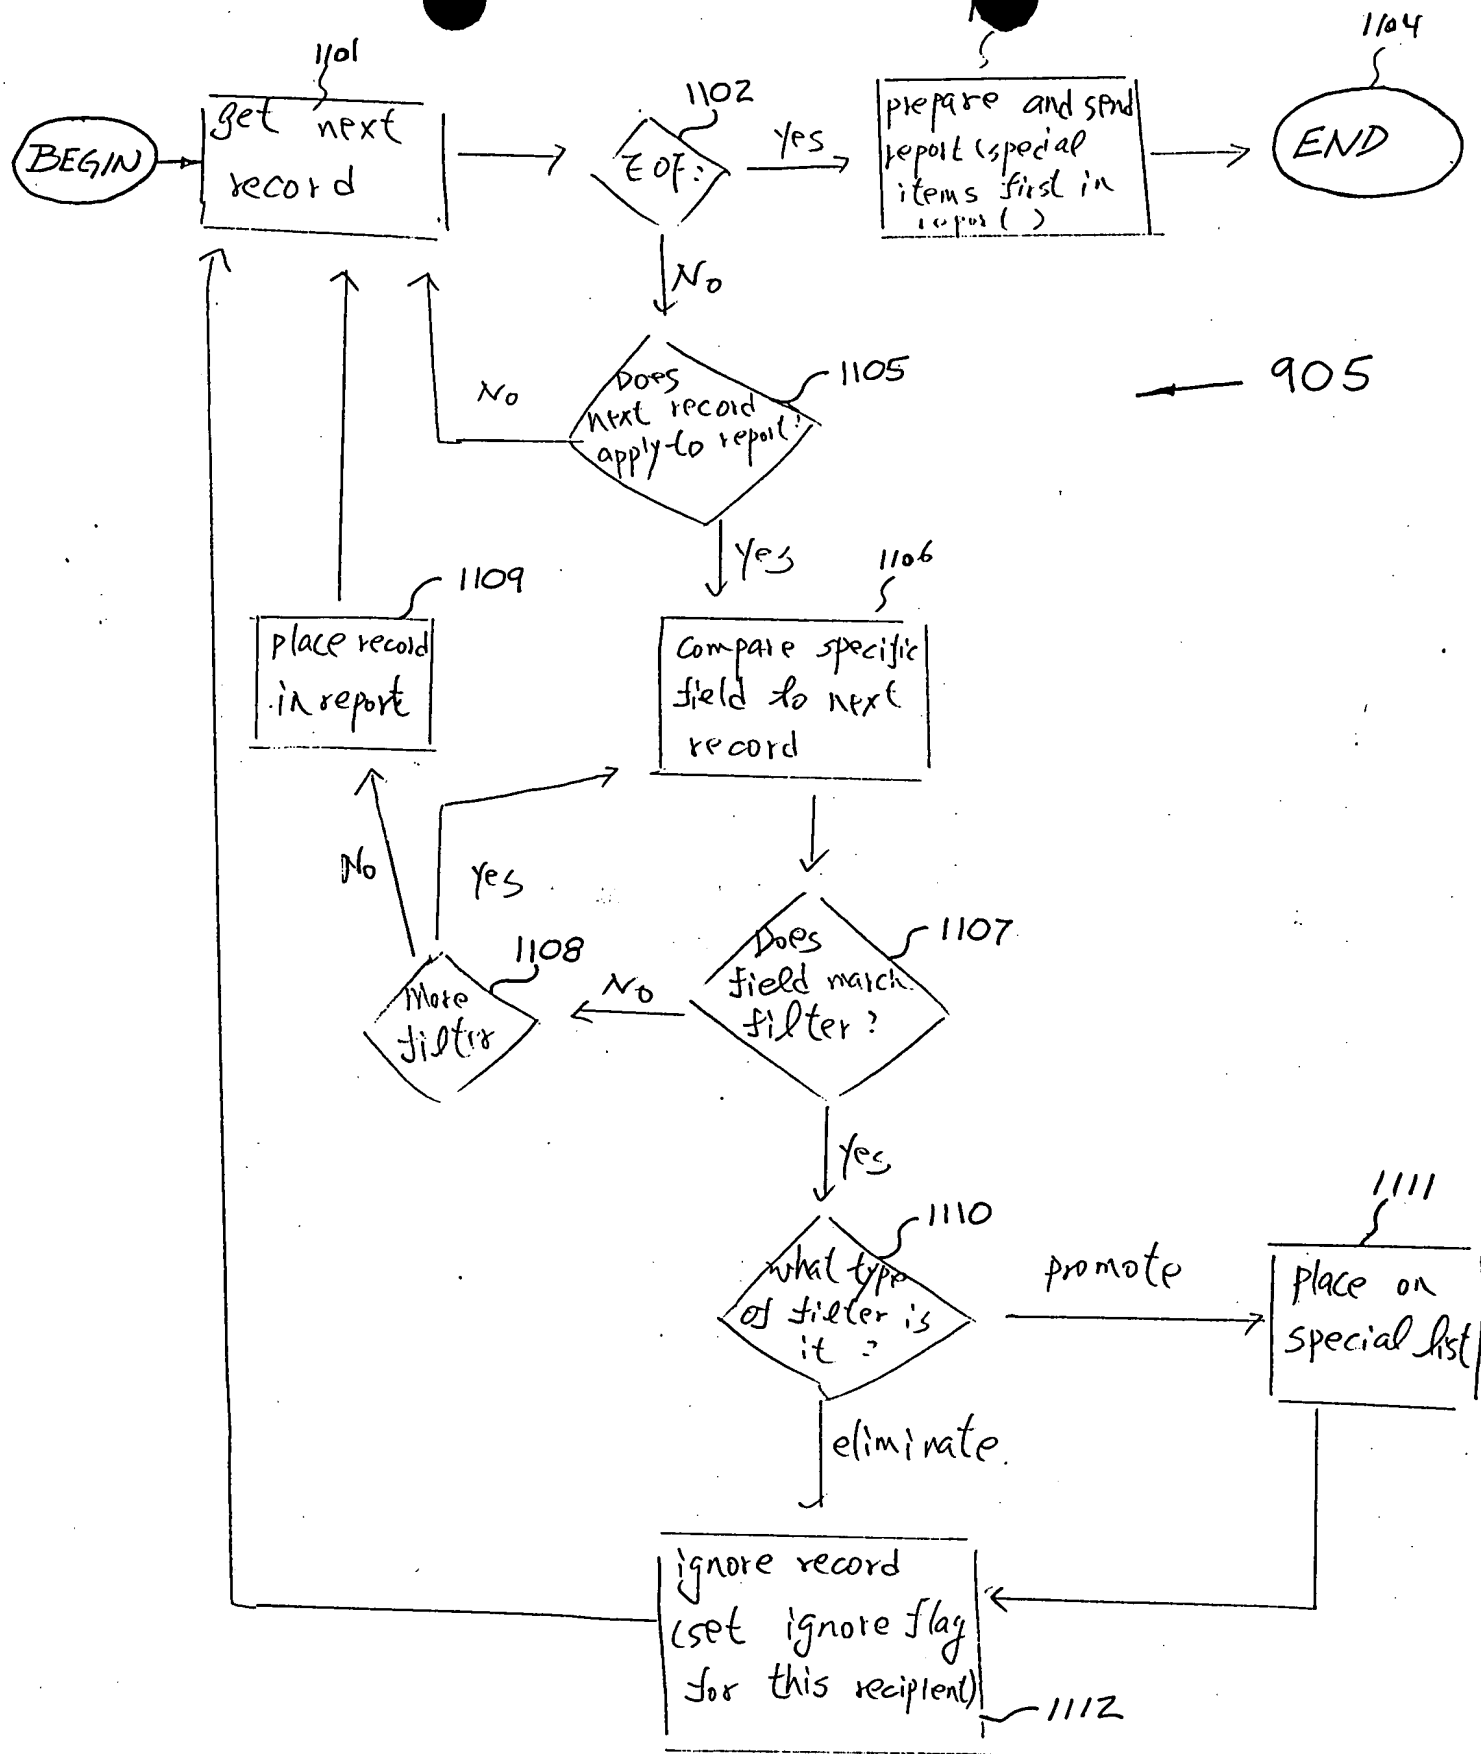 1101
1104
BEGIN
get next
record
1102
EOF?
Yes
prepare and send
report (special
items first in
report)
END
No
905
No
Does
next record
apply to report?
1105
Yes
1109
place record
in report
1106
Compare specific
field to next
record
No
Yes
1108
More
filter
No
1107
Does
field march
filter?
Yes
1110
what type
of filter is
it ?
promote
1111
place on
special list
eliminate.
ignore record
(set ignore flag
for this recipient)
1112